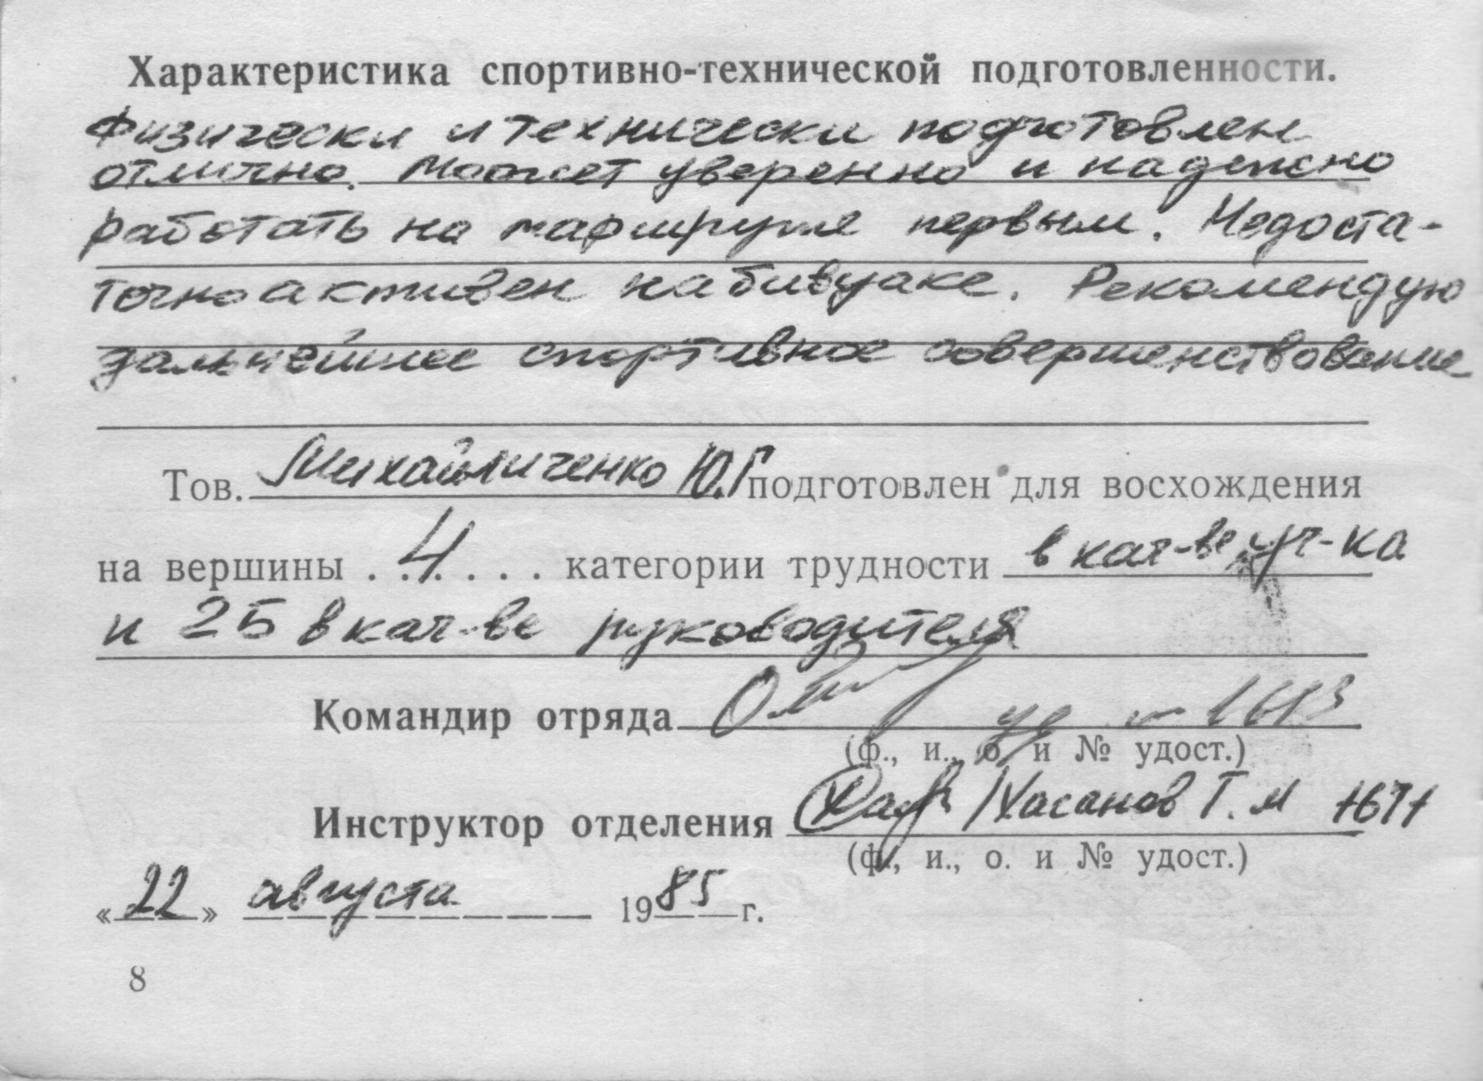 Характеристика спортивно-технической подготовленности.
Физически и технически подготовлен
отлично. Может уверенно и надежно
работать на маршруте первым. Недоста-
точно активен на бивуаке. Рекомендую
дальнейшее спортивное совершенствование
Тов. Михайличенко Ю.Г подготовлен для восхождения
на вершины . 4 . . . . категории трудности в кач-ве уч-ка
и 2Б в кач-ве руководителя
Командир отряда
(ф., и., о. и № удост.)
Инструктор отделения Хасанов Т. М 1671
(ф., и., о. и № удост.)
«22» августа 1985 г.
8